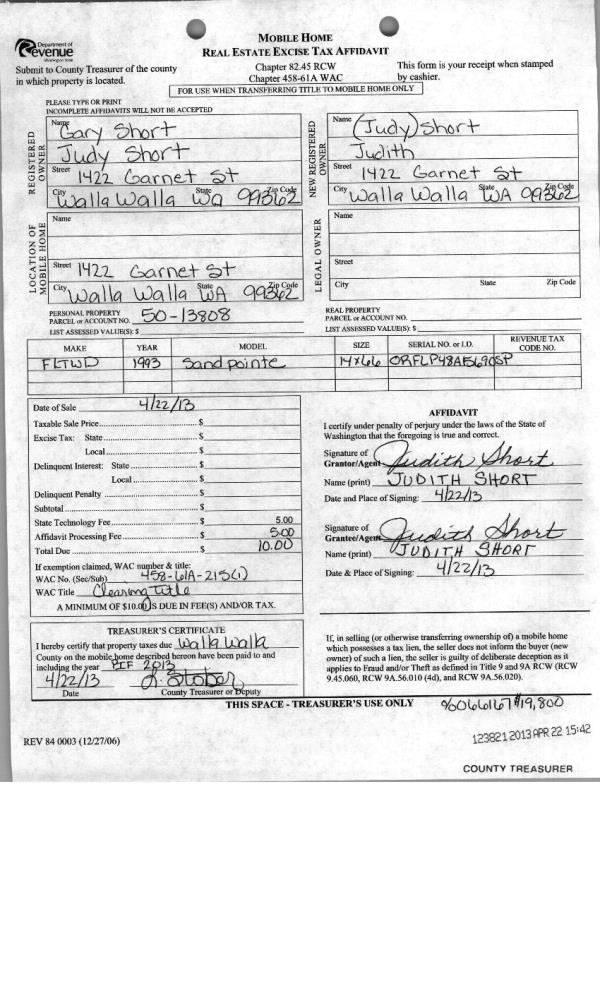 Department of
Revenue
Washington State
MOBILE HOME
REAL ESTATE EXCISE TAX AFFIDAVIT
Submit to County Treasurer of the county
in which property is located.
Chapter 82.45 RCW
Chapter 458-61A WAC
This form is your receipt when stamped
by cashier.
FOR USE WHEN TRANSFERRING TITLE TO MOBILE HOME ONLY
PLEASE TYPE OR PRINT
INCOMPLETE AFFIDAVITS WILL NOT BE ACCEPTED
REGISTERED
OWNER
Name Gary Short
Judy Short
Street 1422 Garnet St
City Walla Walla State Wa Zip Code 99362
NEW REGISTERED
OWNER
Name (Judy) Short
Judith
Street 1422 Garnet St
City Walla Walla State WA Zip Code 99362
LOCATION OF
MOBILE HOME
Name
Street 1422 Garnet St
City Walla Walla State WA Zip Code 99362
LEGAL OWNER
Name
Street
City State Zip Code
PERSONAL PROPERTY
PARCEL or ACCOUNT NO. 50-13808
LIST ASSESSED VALUE(S): $
REAL PROPERTY
PARCEL or ACCOUNT NO.
LIST ASSESSED VALUE(S): $
MAKE YEAR MODEL SIZE SERIAL NO. or I.D. REVENUE TAX CODE NO.
FLTWD 1993 Sandpointe 14x66 ORFLP48A5690SP
Date of Sale 4/22/13
Taxable Sale Price $
Excise Tax: State $
Local $
Delinquent Interest: State $
Local $
Delinquent Penalty $
Subtotal $
State Technology Fee $ 5.00
Affidavit Processing Fee $ 5.00
Total Due $ 10.00
If exemption claimed, WAC number & title:
WAC No. (Sec/Sub) 458-61A-215(1)
WAC Title Clearing title
A MINIMUM OF $10.00 IS DUE IN FEE(S) AND/OR TAX.
AFFIDAVIT
I certify under penalty of perjury under the laws of the State of
Washington that the foregoing is true and correct.
Signature of
Grantor/Agent Judith Short
Name (print) JUDITH SHORT
Date and Place of Signing: 4/22/13
Signature of
Grantee/Agent Judith Short
Name (print) JUDITH SHORT
Date & Place of Signing: 4/22/13
TREASURER'S CERTIFICATE
I hereby certify that property taxes due Walla Walla
County on the mobile home described hereon have been paid to and
including the year PIF 2013
4/22/13 D. Stober
Date County Treasurer or Deputy
If, in selling (or otherwise transferring ownership of) a mobile home
which possesses a tax lien, the seller does not inform the buyer (new
owner) of such a lien, the seller is guilty of deliberate deception as it
applies to Fraud and/or Theft as defined in Title 9 and 9A RCW (RCW
9.45.060, RCW 9A.56.010 (4d), and RCW 9A.56.020).
THIS SPACE - TREASURER'S USE ONLY
$19,800
REV 84 0003 (12/27/06)
123821 2013 APR 22 15:42
COUNTY TREASURER